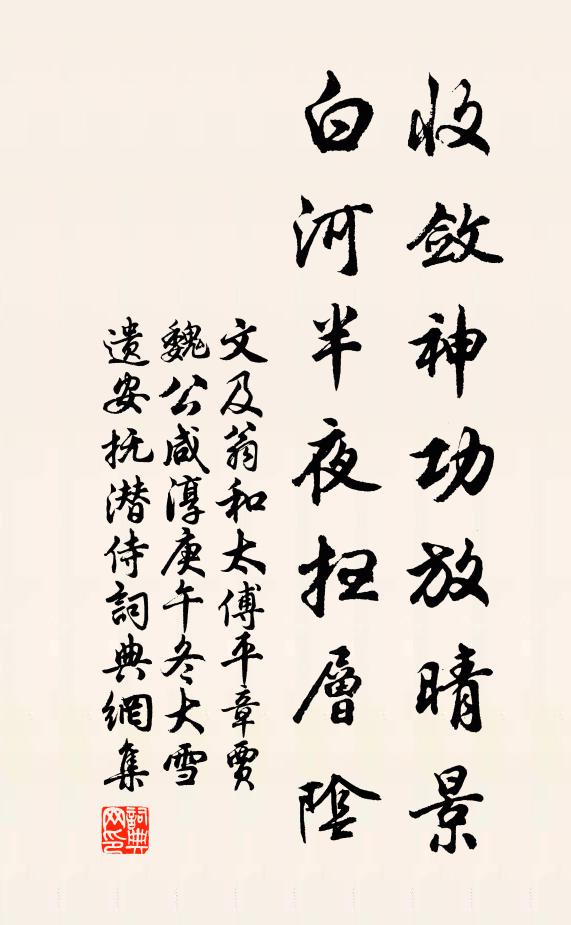 收斂神功放晴景
白河半夜扫層陰
文及翁和太傅平章賈
魏公咸淳庚午冬大雪
遺安抚潜侍詞典網集
詞典网印